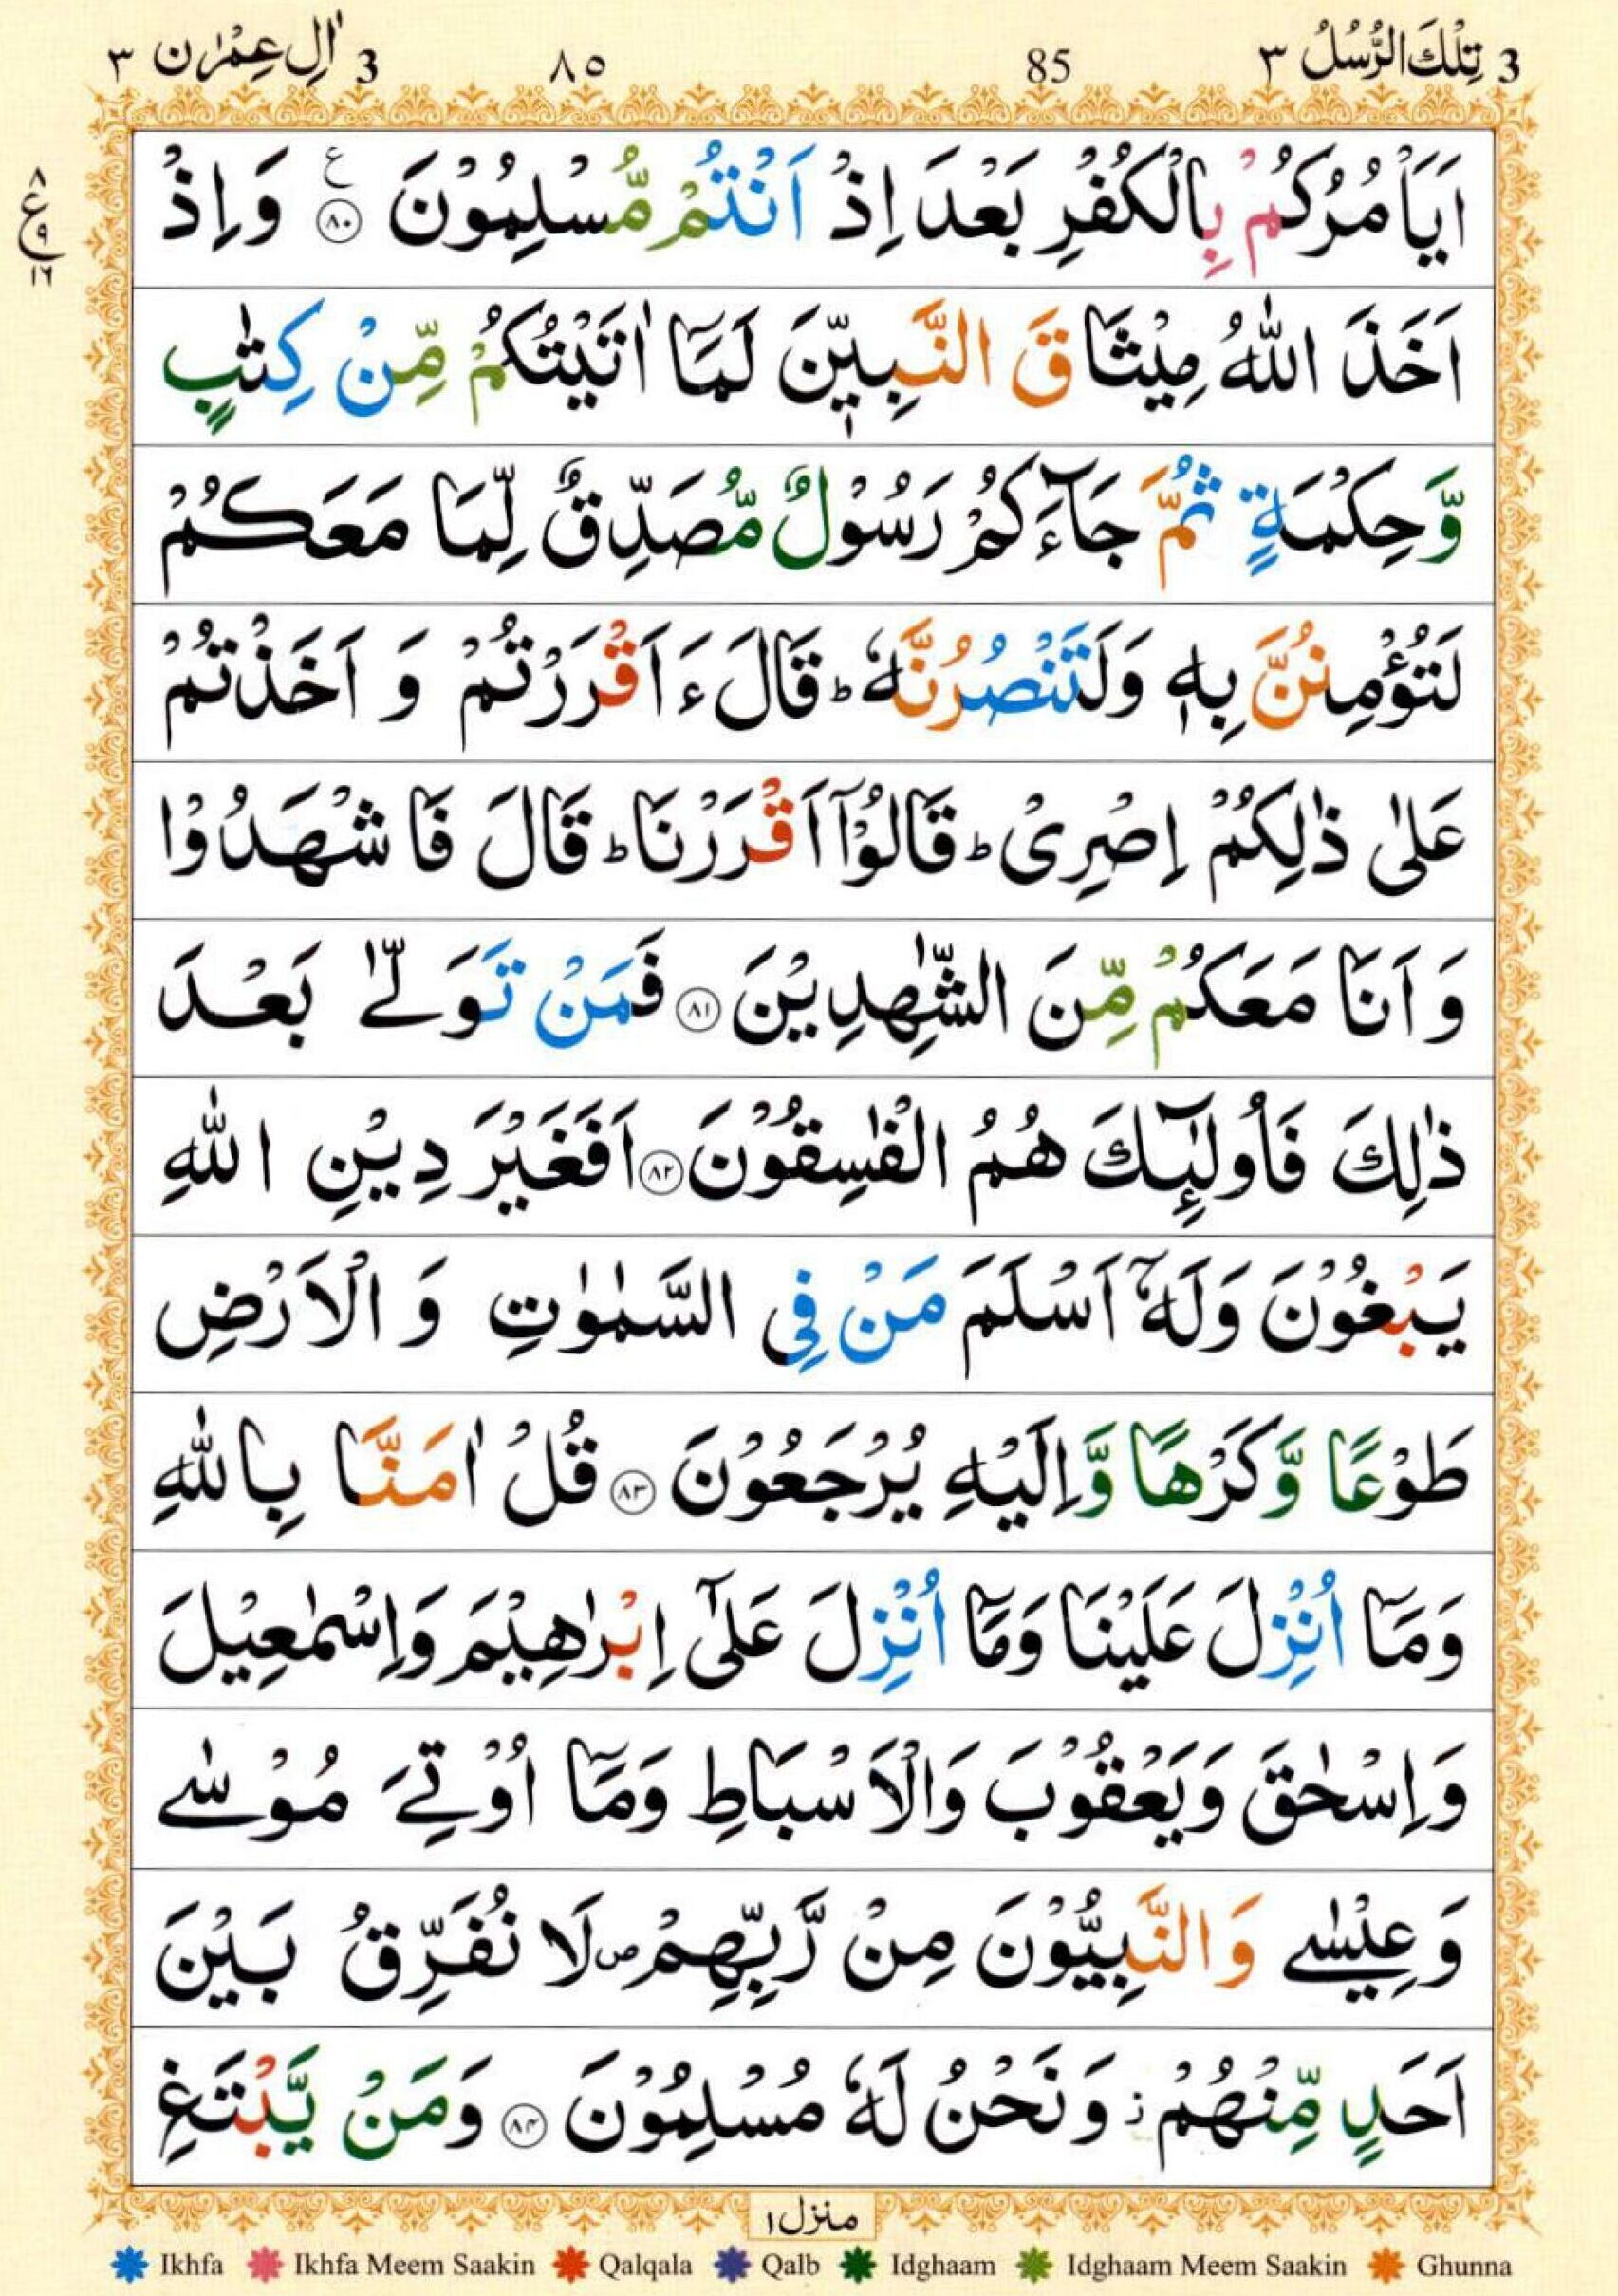 3 تِلْكَ الرُّسُلُ ٣ 85 ٨٥ 3 اٰلِ عِمْرٰن ٣
اَيَاْمُرُكُمْ بِالْكُفْرِ بَعْدَ اِذْ اَنْتُمْ مُّسْلِمُوْنَ ۟ع ﴿٨٠﴾ وَاِذْ
٨
ع
٩
١٦
اَخَذَ اللّٰهُ مِيْثَاقَ النَّبِيّٖنَ لَمَاۤ اٰتَيْتُكُمْ مِّنْ كِتٰبٍ
وَّحِكْمَةٍ ثُمَّ جَآءَكُمْ رَسُوْلٌ مُّصَدِّقٌ لِّمَا مَعَكُمْ
لَتُؤْمِنُنَّ بِهٖ وَلَتَنْصُرُنَّهٗ ؕ قَالَ ءَاَقْرَرْتُمْ وَ اَخَذْتُمْ
عَلٰى ذٰلِكُمْ اِصْرِىْ ؕ قَالُوْۤا اَقْرَرْنَا ؕ قَالَ فَاشْهَدُوْا
وَ اَنَا مَعَكُمْ مِّنَ الشّٰهِدِيْنَ ﴿٨١﴾ فَمَنْ تَوَلّٰى بَعْدَ
ذٰلِكَ فَاُولٰٓئِكَ هُمُ الْفٰسِقُوْنَ ﴿٨٢﴾ اَفَغَيْرَ دِيْنِ اللّٰهِ
يَبْغُوْنَ وَلَهٗۤ اَسْلَمَ مَنْ فِى السَّمٰوٰتِ وَ الْاَرْضِ
طَوْعًا وَّكَرْهًا وَّاِلَيْهِ يُرْجَعُوْنَ ﴿٨٣﴾ قُلْ اٰمَنَّا بِاللّٰهِ
وَمَاۤ اُنْزِلَ عَلَيْنَا وَمَاۤ اُنْزِلَ عَلٰٓى اِبْرٰهِيْمَ وَاِسْمٰعِيْلَ
وَاِسْحٰقَ وَيَعْقُوْبَ وَالْاَسْبَاطِ وَمَاۤ اُوْتِىَ مُوْسٰى
وَعِيْسٰى وَالنَّبِيُّوْنَ مِنْ رَّبِّهِمْ ص لَا نُفَرِّقُ بَيْنَ
اَحَدٍ مِّنْهُمْ ز وَنَحْنُ لَهٗ مُسْلِمُوْنَ ﴿٨٤﴾ وَمَنْ يَّبْتَغِ
منزل ١
Ikhfa Ikhfa Meem Saakin Qalqala Qalb Idghaam Idghaam Meem Saakin Ghunna